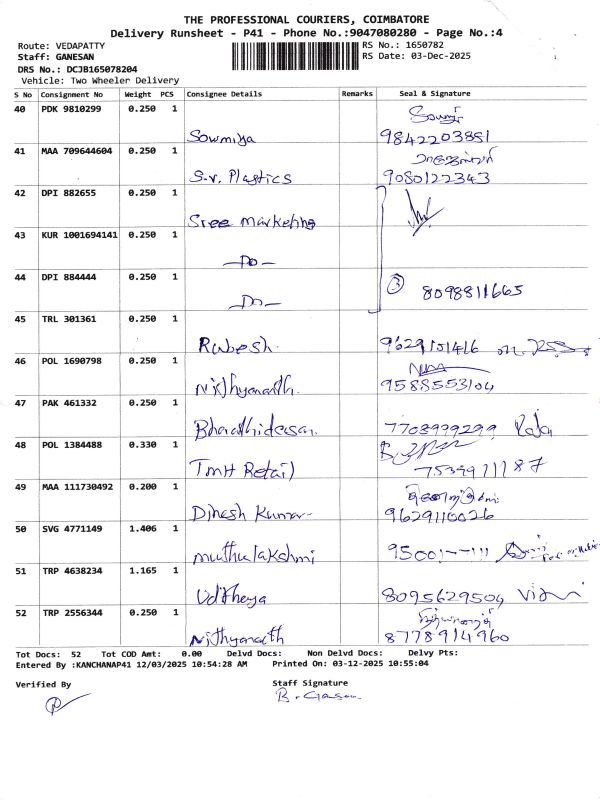 THE PROFESSIONAL COURIERS, COIMBATORE
Delivery Runsheet - P41 - Phone No.:9047080280 - Page No.:4
Route: VEDAPATTY RS No.: 1650782
Staff: GANESAN RS Date: 03-Dec-2025
DRS No.: DCJB165078204
Vehicle: Two Wheeler Delivery
S No Consignment No Weight PCS Consignee Details Remarks Seal & Signature
40 PDK 9810299 0.250 1
Sowmiya 9842203881
41 MAA 709644604 0.250 1
S.v. Plastics 9080122343
42 DPI 882655 0.250 1
Sree Marketing
43 KUR 1001694141 0.250 1
-Do-
44 DPI 884444 0.250 1
3 8098811665
-Do-
45 TRL 301361 0.250 1
9629151416
46 POL 1690798 0.250 1
Nithyananth 9588553104
47 PAK 461332 0.250 1
Bharathidasan 7703999299 Raja
48 POL 1384488 0.330 1
TMH Retail 7539911187
49 MAA 111730492 0.200 1
Dinesh Kumar 9629110026
50 SVG 4771149 1.406 1
muthulakshmi
51 TRP 4638234 1.165 1
Uditheya 8095629504
52 TRP 2556344 0.250 1
Nithyananth 8778914960
Tot Docs: 52 Tot COD Amt: 0.00 Delvd Docs: Non Delvd Docs: Delvy Pts:
Entered By :KANCHANAP41 12/03/2025 10:54:28 AM Printed On: 03-12-2025 10:55:04
Verified By Staff Signature